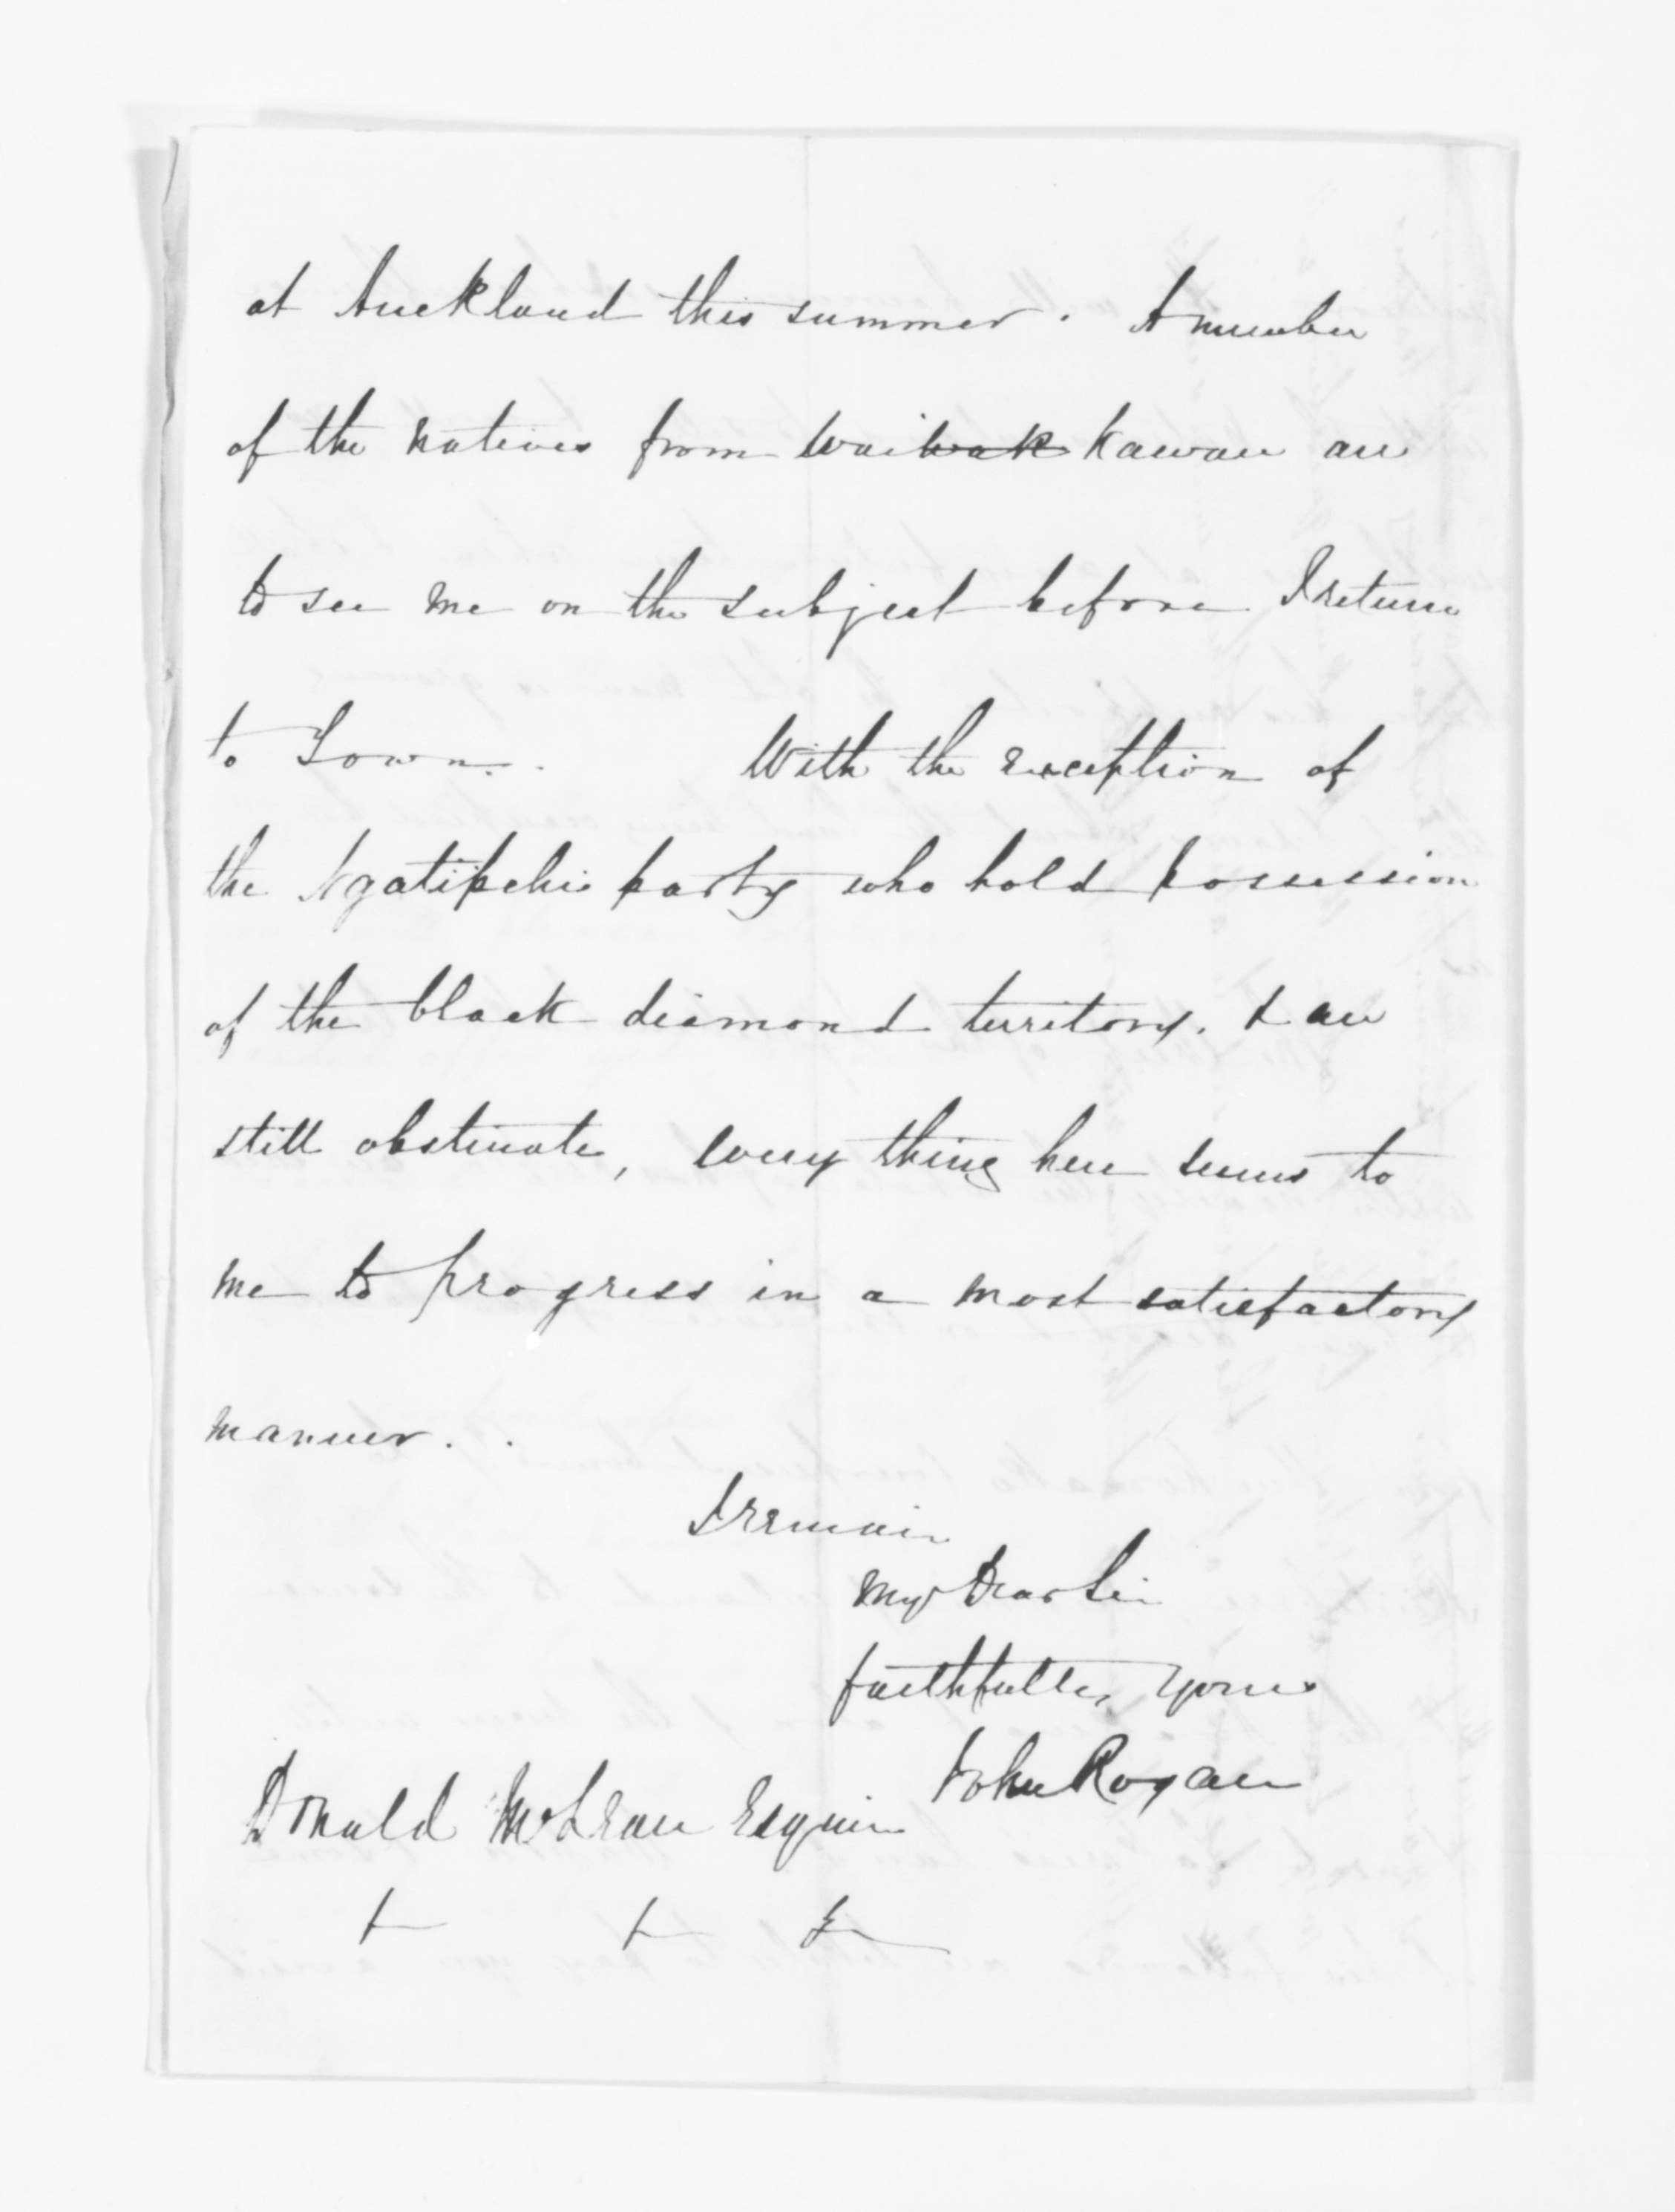 at Auckland this summer. A number
of the natives from Waiwak Kawau are
to see me on the subject before I return
to Town. With the exception of
the Ngatipehi party who hold possession
of the black diamond territory. & are
still obstinate, every thing here seems to
me to progress in a most satisfactory
manner.
I remain
My Dear Sir
faithfully yours
John Rogan
Donald McLean Esquire
& & &